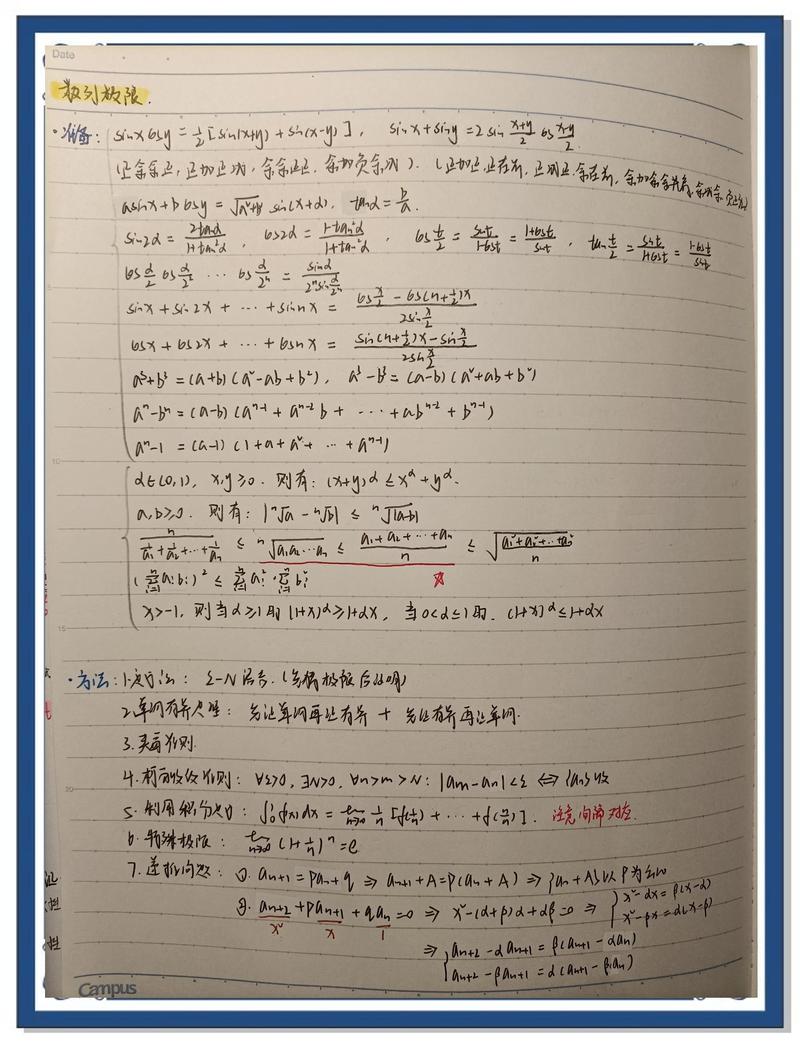 Date
数列极限.
·准备: sinxcosy = 1/2[sin(x+y) + sin(x-y)], sinx+siny = 2 sin (x+y)/2 cos (x-y)/2.
(正余余正, 正加正减, 余余正正, 余加负余减). (正加正, 正在前, 正减正, 余在前, 余加余
asinx+bcosy = √(a²+b²) sin(x+α), tanα = b/a.
sin2α = 2tanα/(1+tan²α), cos2α = (1-tan²α)/(1+tan²α), cos t/2 = sint/(1-cost) = (1+cost)/sint, tan t/2 = sint/(1+cost) = (1-cost)/sint
cos α/2 cos α/2² ··· cos α/2ⁿ = sinα/(2ⁿ sin α/2ⁿ)
sinx + sin2x + ··· + sinnx = (cos x/2 - cos(n+1/2)x)/(2sin x/2)
cosx + cos2x + ··· + cosnx = (sin(n+1/2)x - sin x/2)/(2sin x/2)
a³+b³ = (a+b)(a²-ab+b²), a³-b³ = (a-b)(a²+ab+b²)
aⁿ-bⁿ = (a-b)(aⁿ⁻¹ + aⁿ⁻²b + ··· + abⁿ⁻² + bⁿ⁻¹)
aⁿ-1 = (a-1)(1+a+a²+ ··· + aⁿ⁻¹)
α∈(0,1), x,y≥0. 则有: (x+y)^α ≤ x^α + y^α.
a,b≥0. 则有: |ⁿ√a - ⁿ√b| ≤ ⁿ√|a-b|
n/(1/a₁+1/a₂+···+1/aₙ) ≤ ⁿ√(a₁a₂···aₙ) ≤ (a₁+a₂+···+aₙ)/n ≤ √((a₁²+a₂²+···+aₙ²)/n)
(Σaᵢbᵢ)² ≤ Σaᵢ²·Σbᵢ²
x>-1, 则当α≥1时 (1+x)^α≥1+αx, 当0<α≤1时. (1+x)^α≤1+αx
·方法: 1.定义法: ε-N语言. (先猜极限后证明)
2.单调有界定理: 先证单调再证有界 + 先证有界再证单调.
3.夹逼准则.
4.柯西收敛准则: ∀ε>0, ∃N>0, ∀n>m>N: |am-an|<ε ⟺ {an}收
5.利用积分定义: ∫₀¹f(x)dx = lim n→∞ 1/n [f(1/n) + ··· + f(n/n)]. 注意 对应.
6.特殊极限: lim n→∞ (1+1/n)ⁿ = e
7.递推问题: ①. aₙ₊₁ = paₙ+q ⇒ aₙ₊₁+A = p(aₙ+A) ⇒ {aₙ+A}以p为公比
②. aₙ₊₂ + paₙ₊₁ + qaₙ = 0 ⇒ x²-(α+β)α+αβ = 0 ⇒ { x²-αx = β(x-α)
x²-βx = α(x-β)
x² x 1
⇒ { aₙ₊₂ - αaₙ₊₁ = β(aₙ₊₁ - αaₙ)
aₙ₊₂ - βaₙ₊₁ = α(aₙ₊₁ - βaₙ)
Campus